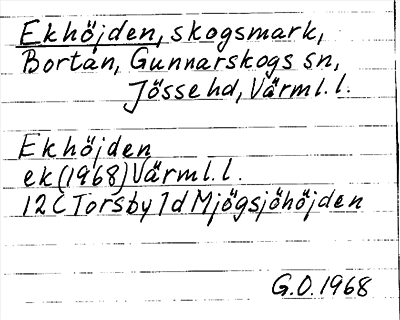 Ekhöjden, skogsmark,
Bortan, Gunnarskogs sn,
Jösse hd, Värml. l.
Ekhöjden
ek (1968) Värml. l.
12 C Torsby 1d Mjögsjöhöjden
G.O. 1968